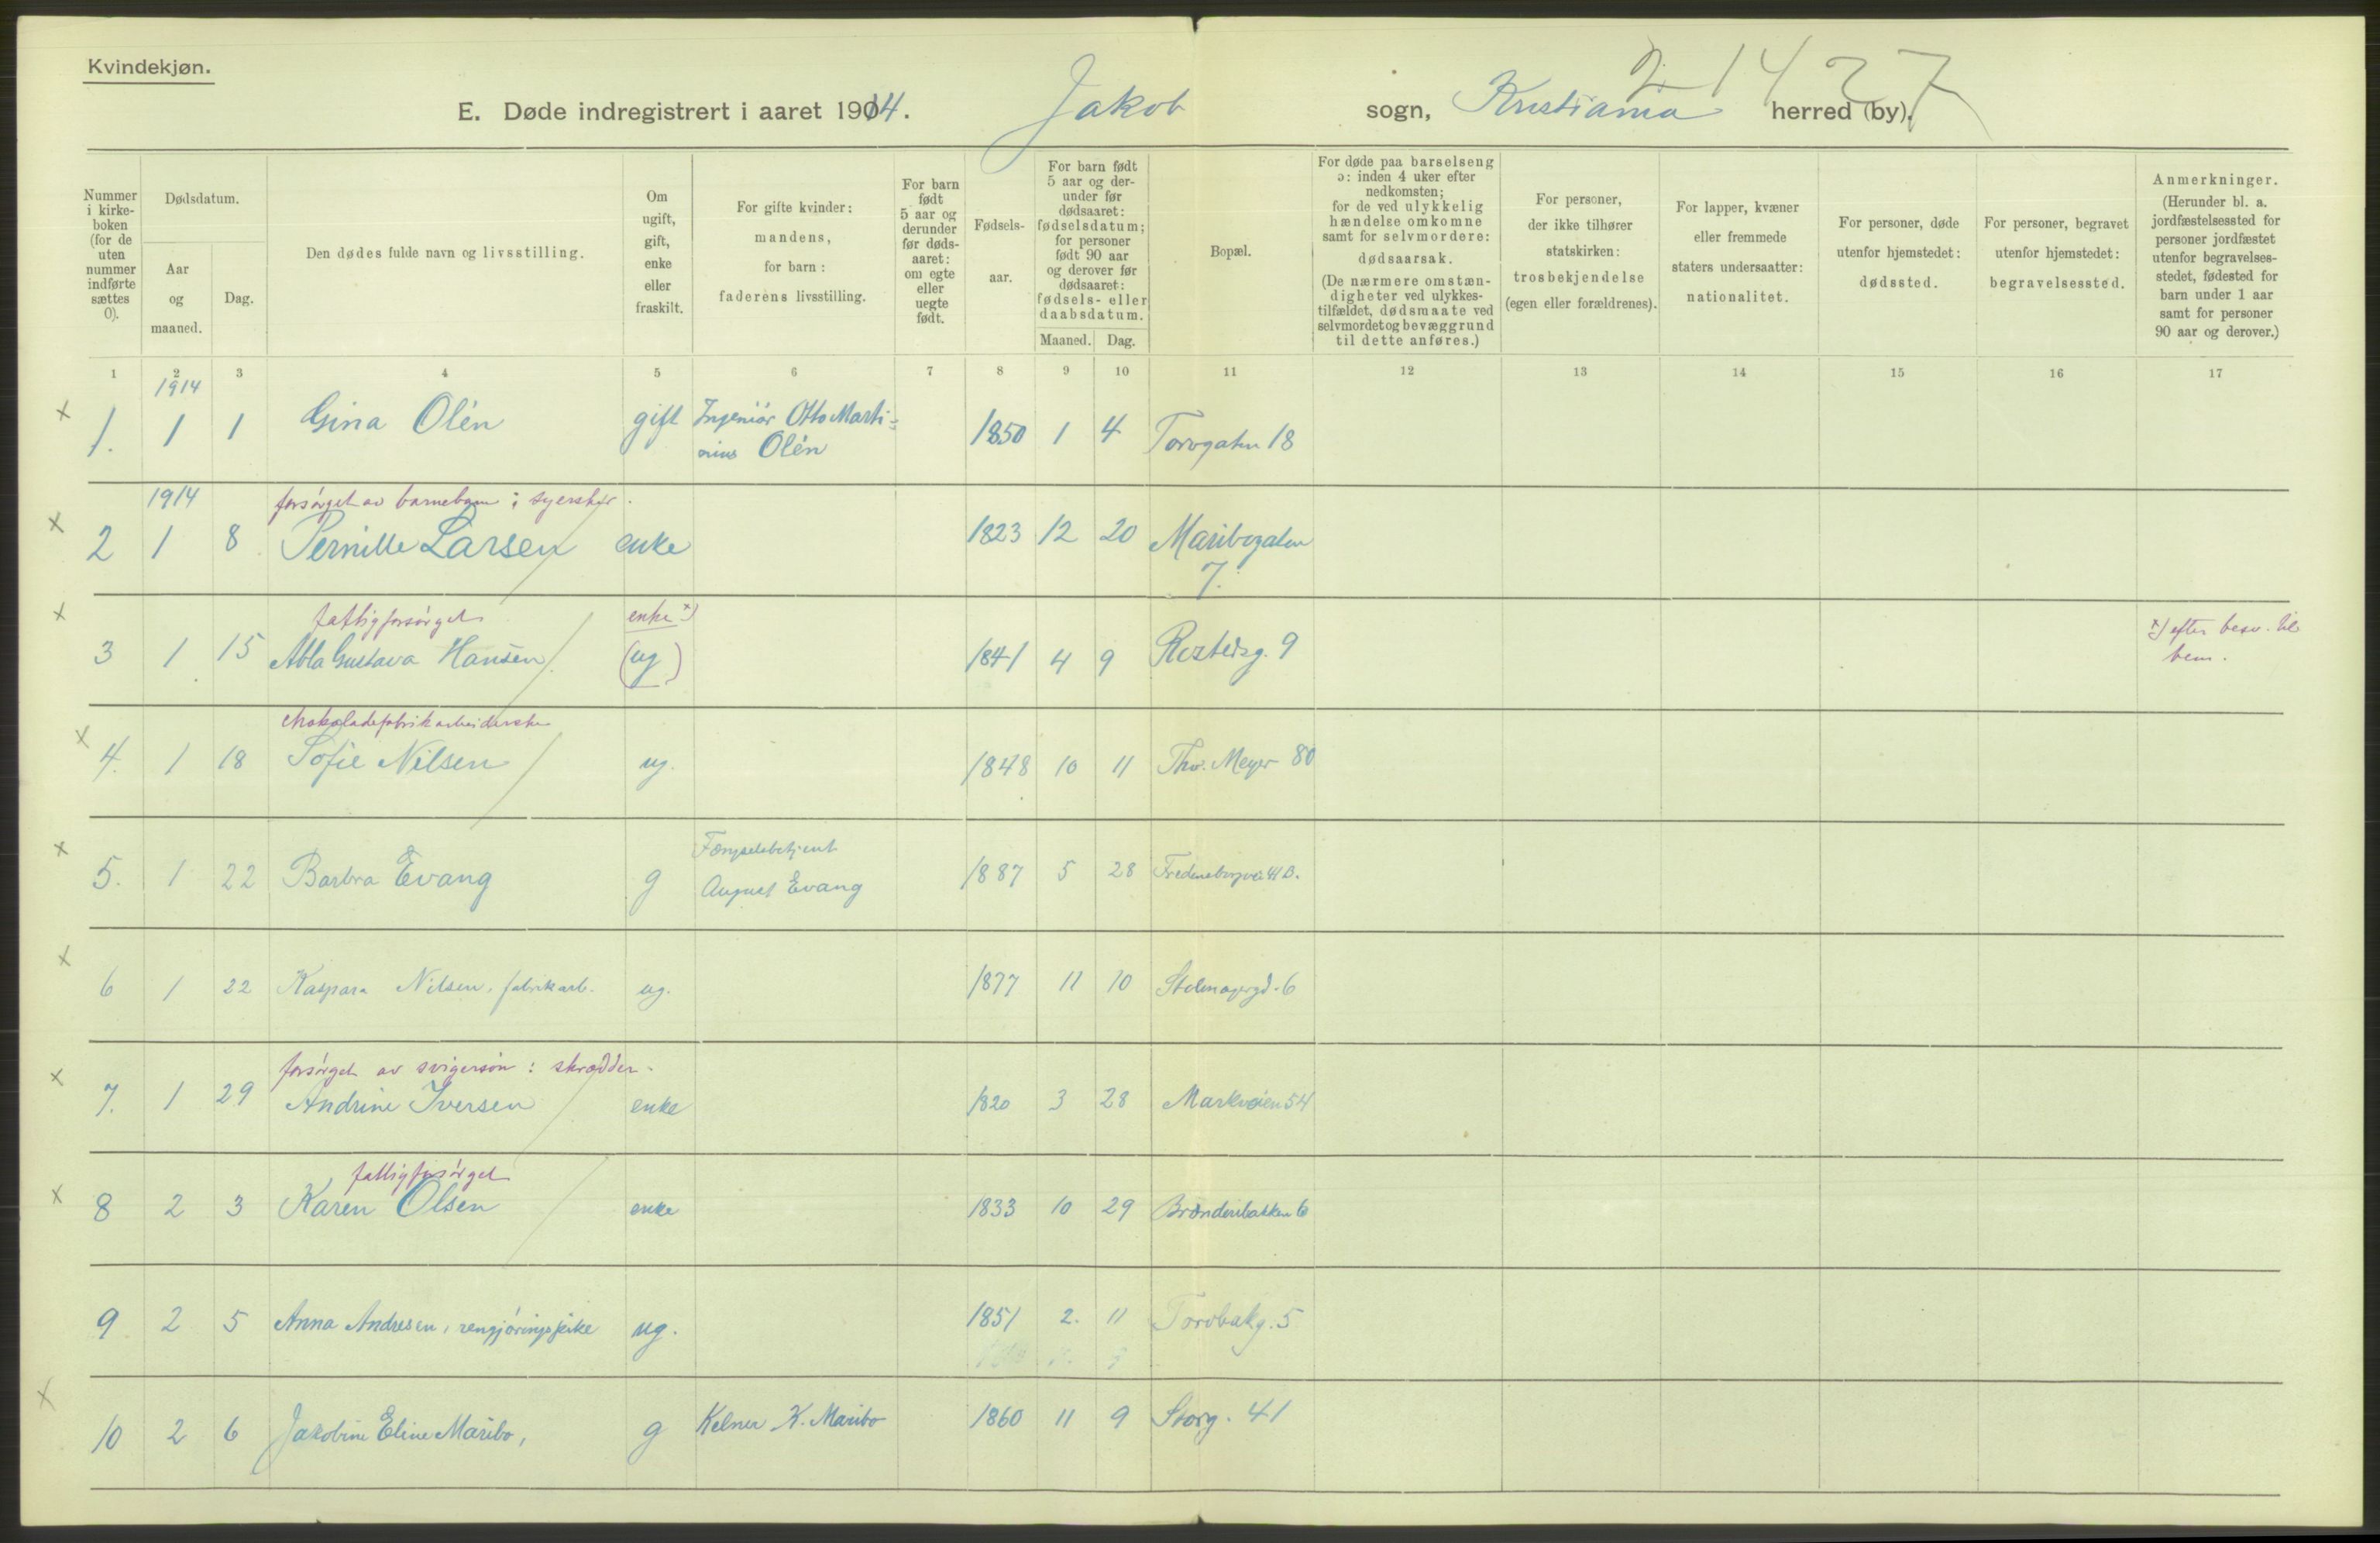 Kvindekjøn.
21427
E. Døde indregistrert i aaret 1914. Jakob sogn, Kristiania herred (by).
Nummer i kirkeboken (for de uten nummer indførte sættes 0).
Dødsdatum.
Aar og maaned.
Dag.
Den dødes fulde navn og livsstilling.
Om ugift, gift, enke eller fraskilt.
For gifte kvinder: mandens, for barn: faderens livsstilling.
For barn født 5 aar og derunder før dødsaaret: om egte eller uegte født.
Fødselsaar.
For barn født 5 aar og derunder før dødsaaret: fødselsdatum; for personer født 90 aar og derover før dødsaaret: fødsels- eller daabsdatum.
Maaned. Dag.
Bopæl.
For døde paa barselseng ɔ: inden 4 uker efter nedkomsten; for de ved ulykkelig hændelse omkomne samt for selvmordere: dødsaarsak. (De nærmere omstændigheter ved ulykkestilfældet, dødsmaate ved selvmordet og bevæggrund til dette anføres.)
For personer, der ikke tilhører statskirken: trosbekjendelse (egen eller forældrenes).
For lapper, kvæner eller fremmede staters undersaatter: nationalitet.
For personer, døde utenfor hjemstedet: dødssted.
For personer, begravet utenfor hjemstedet: begravelsessted.
Anmerkninger. (Herunder bl. a. jordfæstelsessted for personer jordfæstet utenfor begravelsesstedet, fødested for barn under 1 aar samt for personer 90 aar og derover.)
1 2 3 4 5 6 7 8 9 10 11 12 13 14 15 16 17
1914
x 1. 1 1 Gina Olén gift Ingeniør Otto Marti- 1850 1 4 Torvgaten 18
nius Olén
1914 forsørget av barnebarn : syerske.
x 2 1 8 Pernille Larsen enke 1823 12 20 Maribogaten
7.
fattigforsørget enke x)
x 3 1 15 Abla Gustava Hansen (ug) 1841 4 9 Rostedsg. 9 x) efter besv. til
bem.
chokoladefabrikarbeiderske
x 4. 1 18 Sofie Nilsen ug. 1848 10 11 Thv. Meyer 80
Fængselsbetjent
x 5. 1 22 Barbra Evang g August Evang 1887 5 28 Fredensborgvei 41 B.
x 6 1 22 Kaspara Nilsen, fabrikarb. ug. 1877 11 10 6
forsørget av svigersøn : skrædder.
x 7. 1 29 Andrine Iversen enke 1820 3 28 Markveien 54
fattigforsørget
x 8 2 3 Karen Olsen enke 1833 10 29 Brænderibakken 6
9 2 5 Anna Andresen, rengjøringspike ug. 1851 2. 11 Torvbakg. 5
x 10 2 6 Jakobine Eline Maribo, g Kelner K. Maribo 1860 11 9 Storg. 41